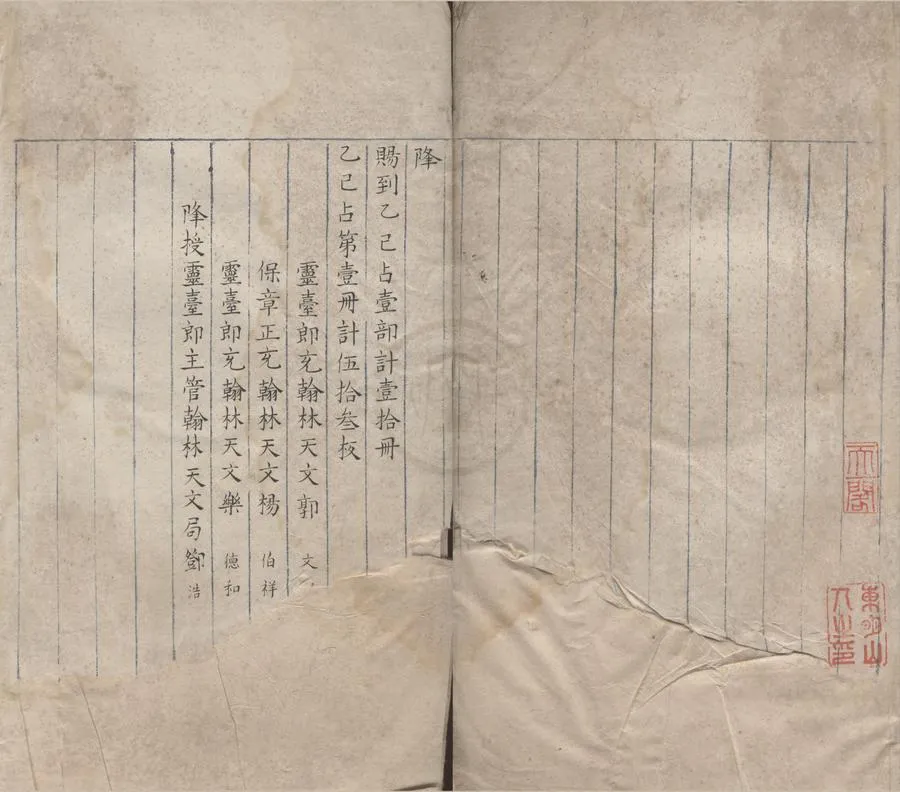 天一閣
東明山
人之印
降
賜到乙己占壹部計壹拾冊
乙己占第壹冊計伍拾叁板
靈臺郎充翰林天文郭 文
保章正充翰林天文楊 伯祥
靈臺郎充翰林天文樂 德和
降授靈臺郎主管翰林天文局鄧 浩